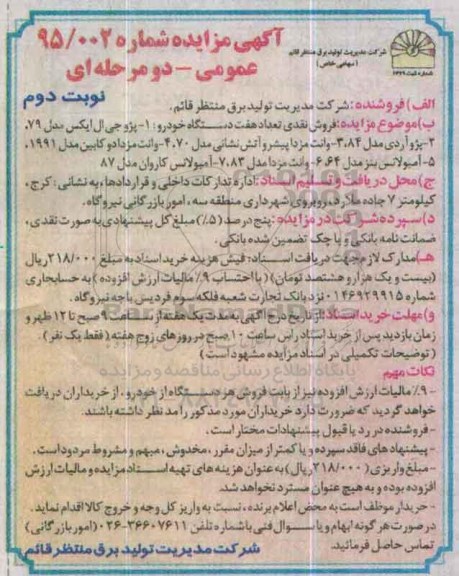 آگهی مزایده شماره ۹۵/۰۰۲
عمومی - دو مرحله ای
شرکت مدیریت تولید برق منتظر قائم
(سهامی خاص)
نوبت دوم
الف) فروشنده: شرکت مدیریت تولید برق منتظر قائم.
ب) موضوع مزایده: فروش نقدی تعداد هفت دستگاه خودرو: ۱- پژو جی ال ایکس مدل ۷۹،
۲- پژو آردی مدل ۸۴، ۳- وانت مزدا پیشرو آتش نشانی مدل ۷۰، ۴- وانت مزدا دو کابین مدل ۱۹۹۱،
۵- آمبولانس بنز مدل ۶۴، ۶- وانت مزدا مدل ۸۳، ۷- آمبولانس کاروان مدل ۸۷
ج) محل دریافت و تسلیم اسناد: اداره تدارکات داخلی و قراردادها، به نشانی: کرج،
کیلومتر ۷ جاده ملارد، روبروی شهرداری منطقه سه، امور بازرگانی نیروگاه.
د) سپرده شرکت در مزایده: پنج درصد (۵٪) مبلغ کل پیشنهادی به صورت نقدی،
ضمانت نامه بانکی و یا چک تضمین شده بانکی.
هـ) مدارک لازم جهت دریافت اسناد: فیش هزینه خرید اسناد به مبلغ ۲۱۸/۰۰۰ ریال
(بیست و یک هزار و هشتصد تومان) (با احتساب ۹٪ مالیات ارزش افزوده) به حساب جاری
شماره ۰۱۴۶۹۲۹۹۱۵ نزد بانک تجارت شعبه فلکه سوم فردیس باجه نیروگاه.
و) مهلت خرید اسناد: از تاریخ درج آگهی به مدت یک هفته از ساعت ۹ صبح تا ۱۲ ظهر و
زمان بازدید پس از خرید اسناد راس ساعت ۱۰ صبح در روزهای زوج هفته (فقط یک نفر).
(توضیحات تکمیلی در اسناد مزایده مشهود است)
نکات مهم
- ۹٪ مالیات ارزش افزوده نیز از بابت فروش هر دستگاه از خودرو، از خریداران دریافت
خواهد گردید که ضرورت دارد خریداران مورد مذکور را مد نظر داشته باشند.
- فروشنده در رد یا قبول پیشنهادات مختار است.
- پیشنهادهای فاقد سپرده و یا کمتر از میزان مقرر، مخدوش، مبهم و مشروط مردود است.
- مبلغ واریزی (۲۱۸/۰۰۰ ریال) به عنوان هزینه های تهیه اسناد مزایده و مالیات ارزش
افزوده بوده و به هیچ عنوان مسترد نخواهد شد.
- خریدار موظف است به محض اعلام برنده، نسبت به واریز کل وجه و خروج کالا اقدام نماید.
در صورت هر گونه ابهام و یا سوال فنی با شماره تلفن ۳۶۶۰۷۶۱۱-۰۲۶ (امور بازرگانی)
تماس حاصل فرمائید.
شرکت مدیریت تولید برق منتظر قائم